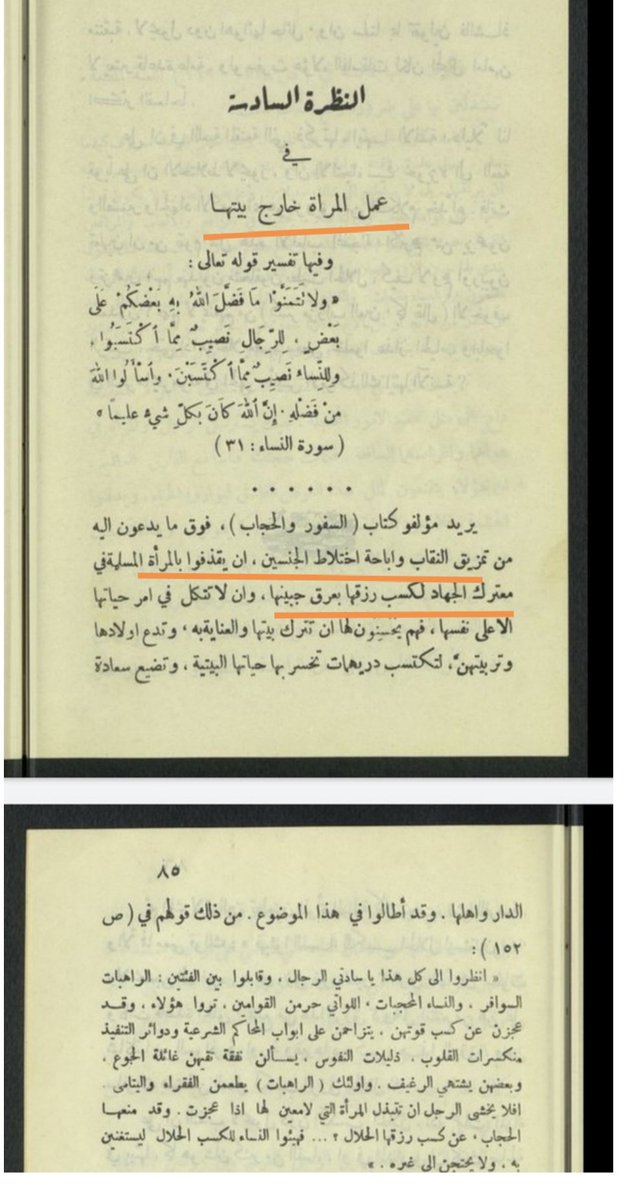 النظرة السادسة
في
عمل المرأة خارج بيتها
وفيها تفسير قوله تعالى :
« ولا تَتَمَنَّوْا مَا فَضَّلَ اللهُ بِهِ بَعْضَكُمْ عَلَى
بَعْضٍ ، لِلرِّجَالِ نَصِيبٌ مِمَّا اكْتَسَبُوا ،
وللنِّسَاء نَصِيبٌ مِمَّا اكْتَسَبْنَ . واسْأَلُوا اللهَ
مِنْ فَضْلِهِ . إِنَّ اللهَ كَانَ بِكلِّ شيءٍ عليمًا »
( سورة النساء : ٣١ )
. . . . . .
يريد مؤلفو كتاب ( السفور والحجاب ) ، فوق ما يدعون اليه
من تمزيق النقاب واباحة اختلاط الجنسين ، ان يقذفوا بالمرأة المسلمة في
معترك الجهاد لكسب رزقها بعرق جبينها ، وان لا تتكل في امر حياتها
الا على نفسها ، فهم يحسنون لها ان تترك بيتها والعناية به ، وتدع اولادها
وتربيتهنّ ، لتكتسب دريهمات تخسر بها حياتها البيتية ، وتضيع سعادة
٨٥
الدار واهلها . وقد أطالوا في هذا الموضوع . من ذلك قولهم في ( ص
١٥٢ ) :
« انظروا الى كل هذا يا سادتي الرجال ، وقابلوا بين الفئتين : الراهبات
السوافر ، والنساء المحجبات ، اللواتي حرمن القوامين ، تروا هؤلاء ، وقد
عجزن عن كسب قوتهن ، يتزاحمن على ابواب المحاكم الشرعية ودوائر التنفيذ
منكسرات القلوب ، ذليلات النفوس ، يسألن نفقة تقيهن غائلة الجوع ،
وبعضهن يشتهي الرغيف ، واولئك ( الراهبات ) يطعمن الفقراء واليتامى .
افلا يخشى الرجل ان تتبذل المرأة التي لا معين لها اذا عجزت ، وقد منعها
الحجاب ، عن كسب رزقها الحلال ؟ ... فهيئوا النساء للكسب الحلال ليستغنين
به ، ولا يحتجن الى غيره . »